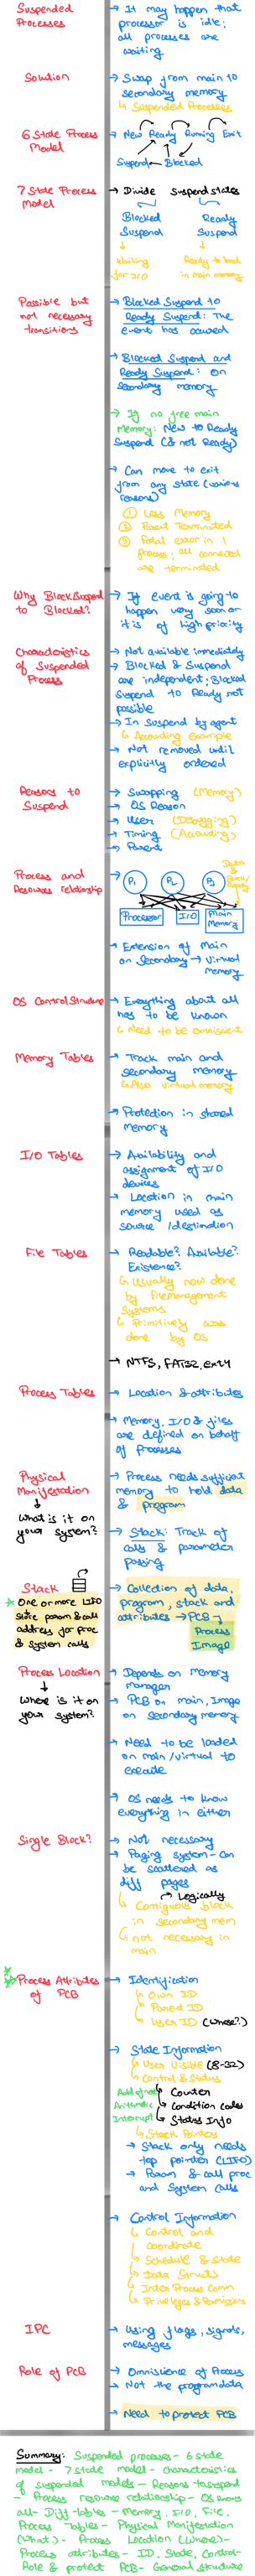 Suspended Processes
→ It may happen that
processor is idle;
all processes are
waiting
Solution
→ Swap from main to
secondary memory
↳ Suspended Processes
6 State Process
Model
→ New Ready Running Exit
Suspend Blocked
7 State Process
Model
→ Divide Suspend states
Blocked Suspend
Ready Suspend
Waiting for I/O
Ready to load in main memory
Possible but
not necessary
transitions
→ Blocked Suspend to
Ready Suspend: The
event has occured
→ Blocked Suspend and
Ready Suspend: On
secondary memory
→ If no free main
Memory: New to Ready
Suspend (& not Ready)
→ Can move to exit
from any state (various
reasons)
① Less Memory
② Parent Terminated
③ Fatal error in 1
process; all connected
are terminated
Why Block Suspend
to Blocked?
→ If event is going to
happen very soon or
it is of high priority
Characteristics
of Suspended
Process
→ Not available immediately
→ Blocked & Suspend
are independent; Blocked
Suspend to Ready not
possible
→ In Suspend by agent
↳ According example
→ Not removed until
explicitly ordered
Reasons to
Suspend
→ Swapping (Memory)
→ OS Reason
→ User (Debugging)
→ Timing (Accounting)
→ Parent
Process and
Resources relationship
→ P1 P2 P3
Processor I/O Main Memory
→ Extension of Main
on Secondary → Virtual
Memory
OS Control Structure
→ Everything about all
has to be known
↳ Need to be omniscient
Memory Tables
→ Track main and
secondary memory
↳ Also virtual memory
→ Protection in shared
Memory
I/O Tables
→ Availability and
assignment of I/O
devices
→ Location in main
memory used as
source / destination
File Tables
→ Readable? Available?
Existence?
↳ Usually now done
by file management
systems
↳ Primitively was
done by OS
→ NTFS, FAT32, ext4
Process Tables
→ Location & attributes
→ Memory, I/O & files
are defined on behalf
of processes
Physical
Manifestation
↓
What is it on
your system?
→ Process needs sufficient
memory to hold data
& program
→ Stack: Track of
calls & parameter
passing
Stack
One or more LIFO
store param & call
address for proc
& system calls
→ Collection of data,
program, stack and
attributes → PCB
Process
Image
Process Location
↓
Where is it on
your system?
→ Depends on memory
manager
→ PCB on main, Image
on secondary memory
→ Need to be loaded
on main/virtual to
execute
→ OS needs to know
everything in either
Single Block?
→ Not necessary
→ Paging system - can
be scattered as
diff pages
→ Logically
↳ Contiguous block
in secondary mem
↳ not necessary in
main
Process Attributes
of PCB
→ Identification
↳ Own ID
↳ Parent ID
↳ User ID (Whose?)
→ State Information
↳ User Visible (8-32)
↳ Control & Status
↳ Counter
Arithmetic ↳ Condition codes
Interrupt ↳ Status Info
↳ Stack Pointers
→ Stack only needs
top pointer (LIFO)
→ Param & call proc
and System Calls
→ Control Information
↳ Control and
coordinate
↳ Schedule & State
↳ Data Structs
↳ Inter Process Comm
↳ Privileges & Permissions
IPC
→ Using flags, signals,
messages
Role of PCB
→ Omniscience of Process
→ Not the program data
→ Need to protect PCB
Summary: Suspended processes - 6 state
model - 7 state model - characteristics
of suspended models - Reasons to suspend
- Process resource relationship - OS knows
all - Diff tables - Memory, I/O, File,
Process Tables - Physical Manifestation
(What) - Process Location (Where) -
Process attributes - ID, State, Control -
Role & protect PCB - General structure